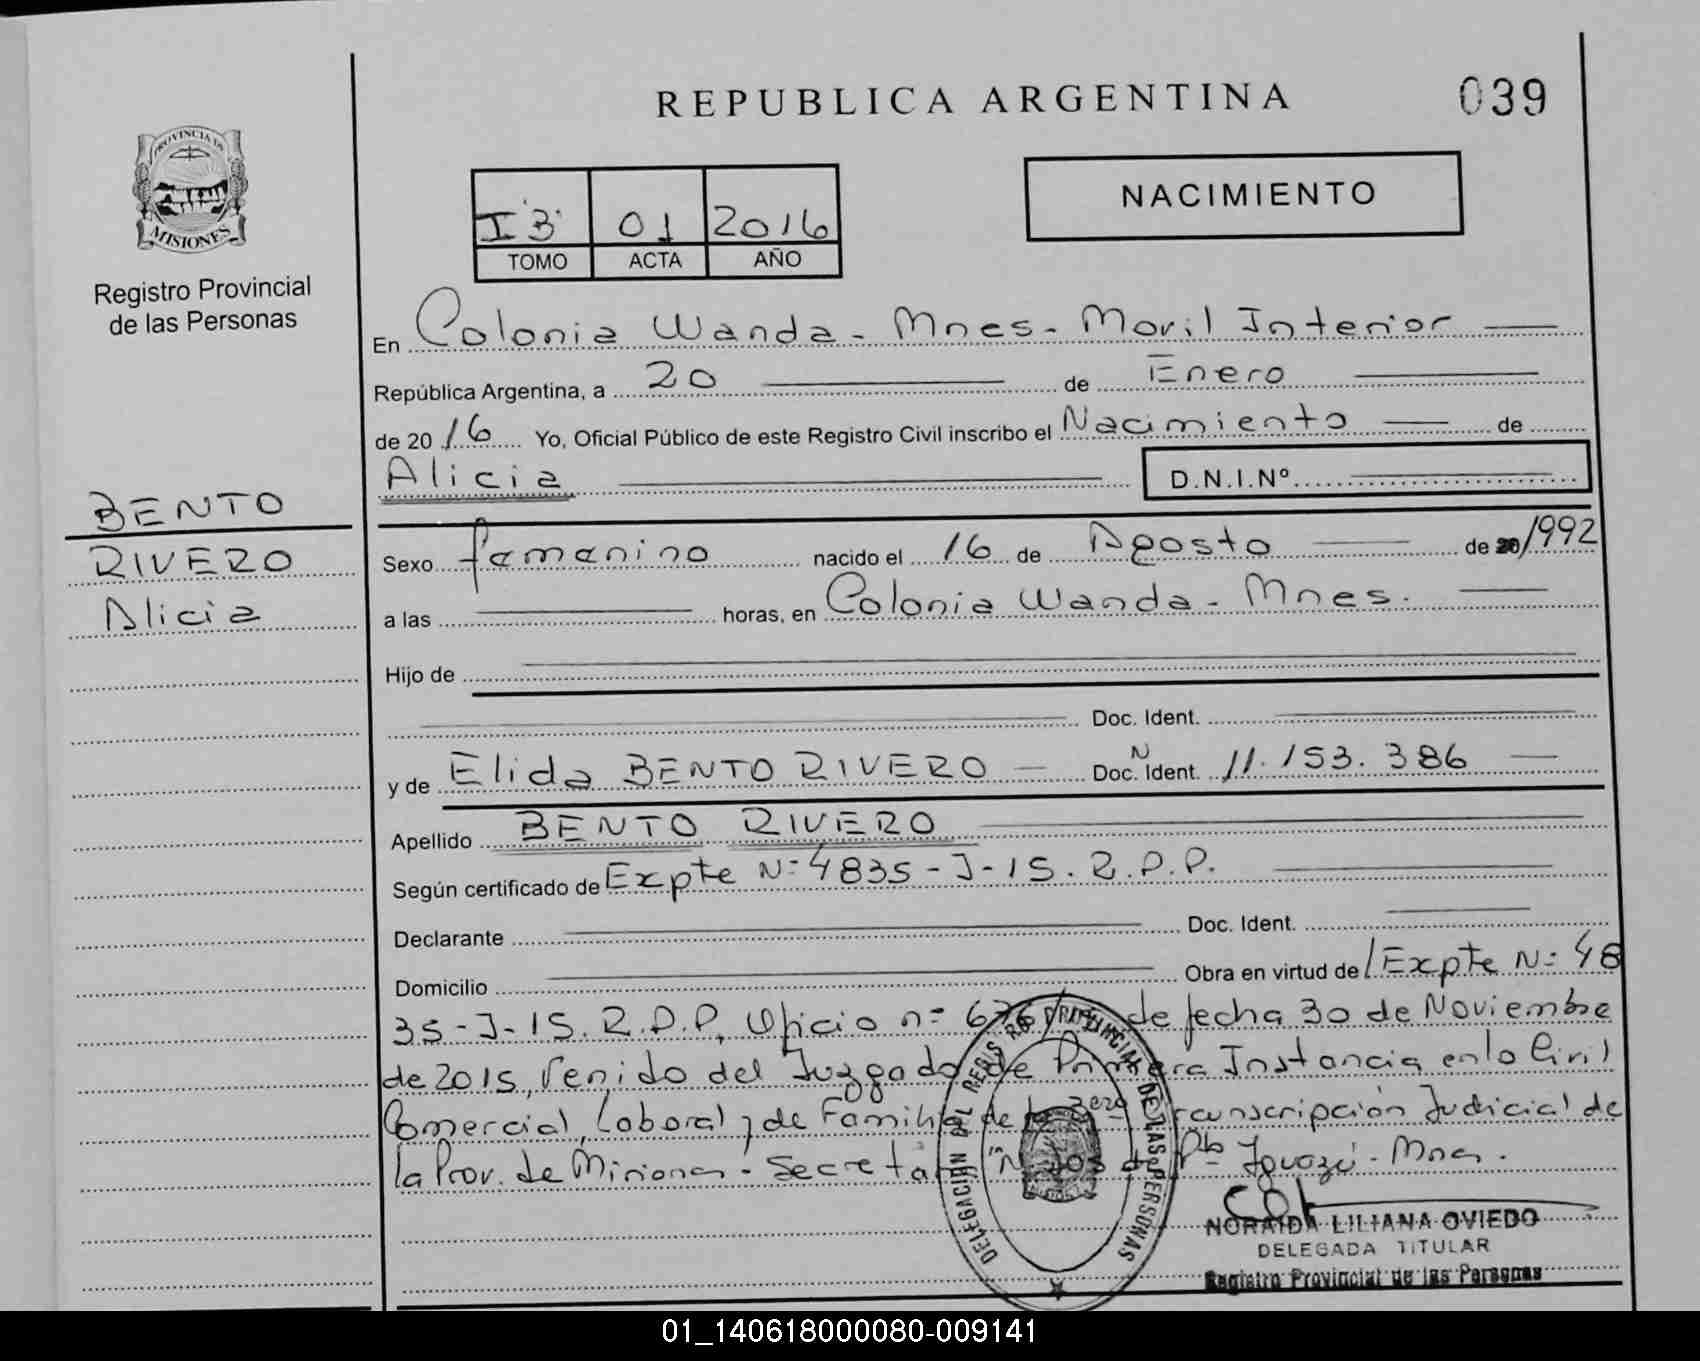 REPUBLICA ARGENTINA
039
PROVINCIA DE
MISIONES
Registro Provincial
de las Personas
I"B" 01 2016
TOMO ACTA AÑO
NACIMIENTO
En Colonia Wanda - Mnes - Movil Interior
República Argentina, a 20 de Enero
de 2016 Yo, Oficial Público de este Registro Civil inscribo el Nacimiento de
Alicia D.N.I.Nº
BENTO
RIVERO
Alicia
Sexo femenino nacido el 16 de Agosto de 1992
a las horas, en Colonia Wanda - Mnes.
Hijo de
Doc. Ident.
y de Elida BENTO RIVERO Doc. N Ident. 11.153.386
Apellido BENTO RIVERO
Según certificado de Expte Nº 4835-J-15. R.P.P.
Declarante Doc. Ident.
Domicilio Obra en virtud de / Expte Nº 48
35-J-15. R.P.P. Oficio nº de fecha 30 de Noviembre
de 2015, Venido del Juzgado de Primera Instancia en lo Civil
Comercial, Laboral y de Familia de la 3era Circunscripción Judicial de
la Prov. de Misiones - Secretaría Nº de Pto Iguazú - Mnes.
DELEGACIÓN DEL REGISTRO PROVINCIAL DE LAS PERSONAS
NORAIDA LILIANA OVIEDO
DELEGADA TITULAR
Registro Provincial de las Personas
01_140618000080-009141